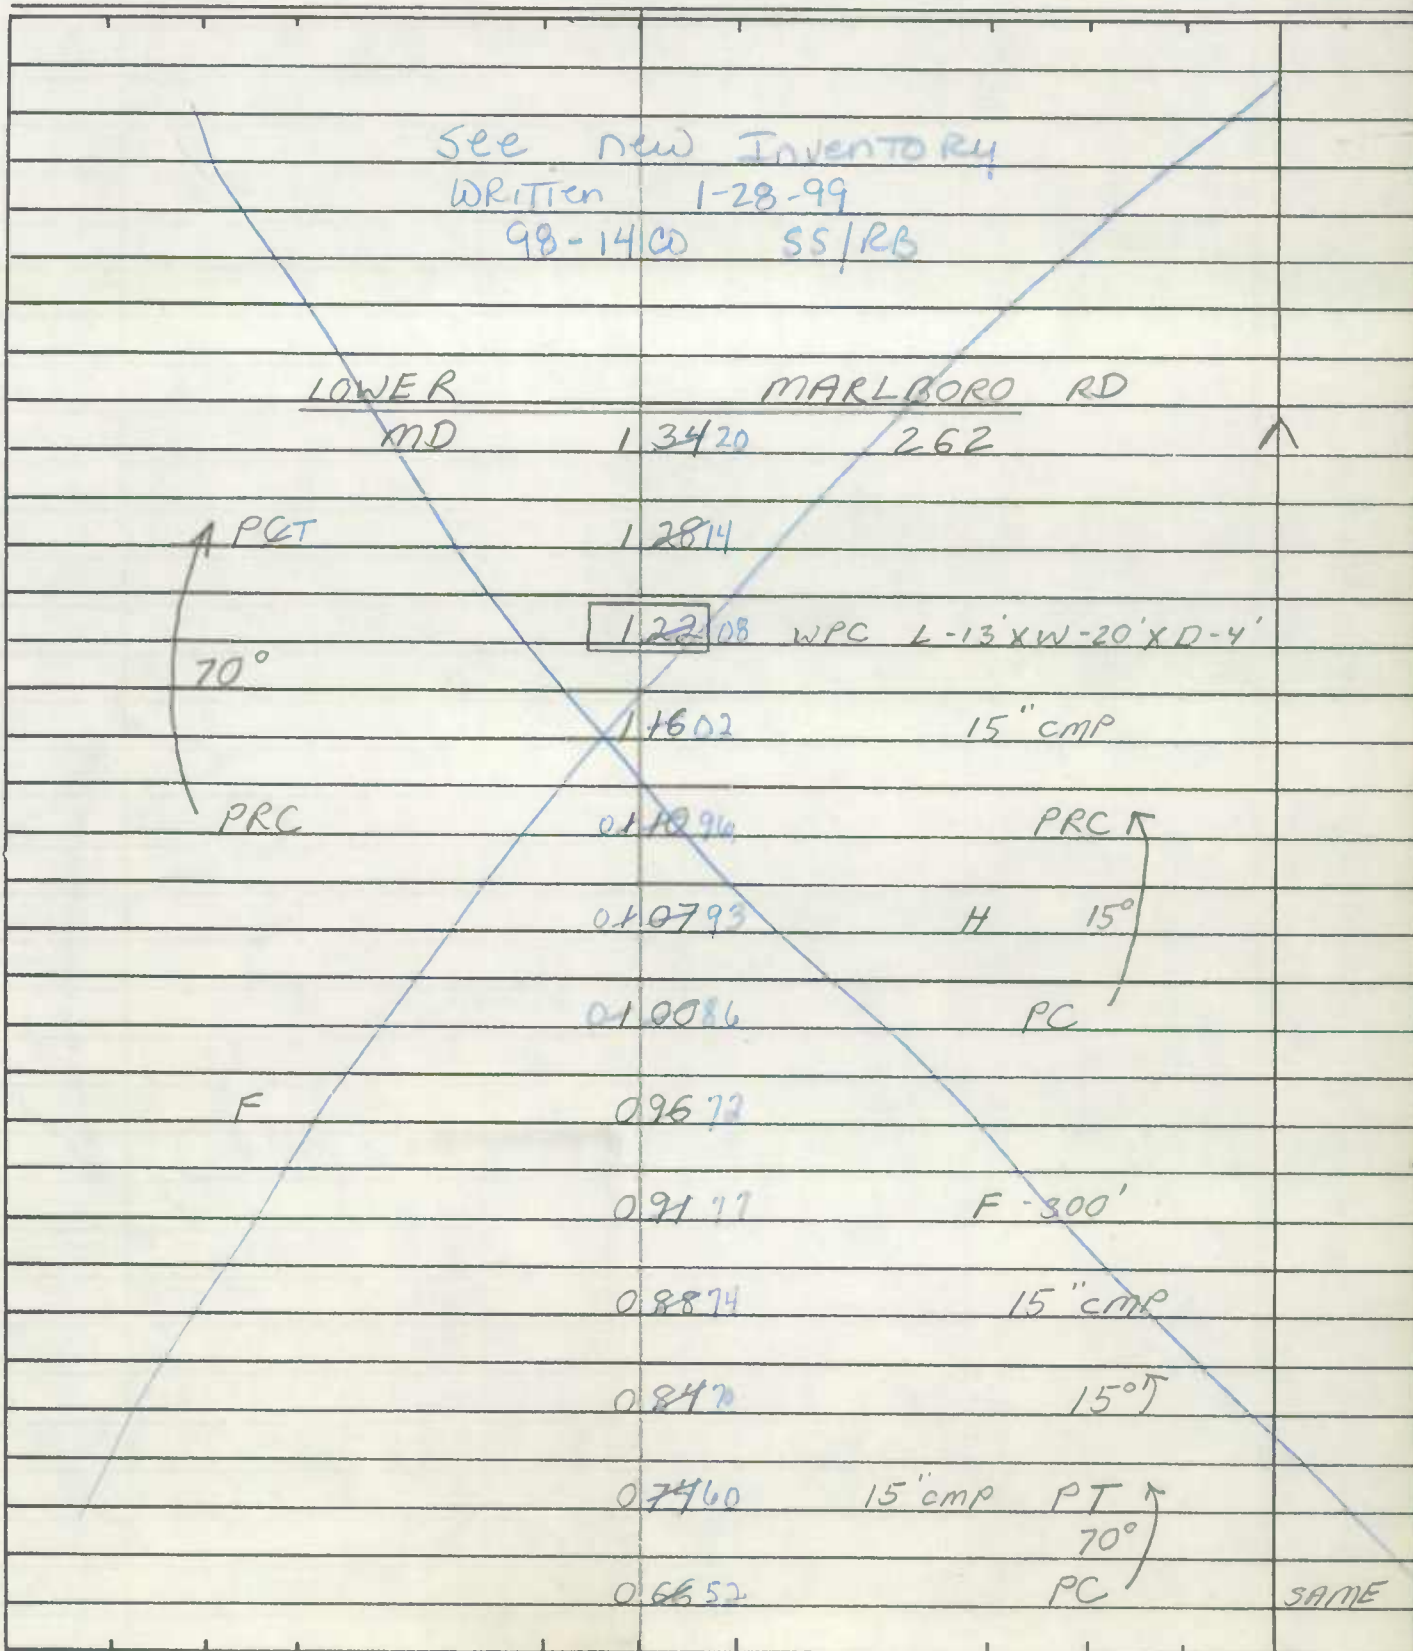 See new Inventory
Written 1-28-99
98-14 CO SS/RB
LOWER MARLBORO RD
MD 1 34 20 262
PCT 1 28 14
1 22 08 WPC L-13' X W-20' X D-4'
70°
1 16 02 15" CMP
PRC 0 1 10 96 PRC
0 1 07 93 H 15°
0 1 00 86 PC
F 0 96
0 91 77 F-300'
0 88 74 15" CMP
0 84 70 15°
0 74 60 15" CMP PT
70°
0 66 52 PC SAME